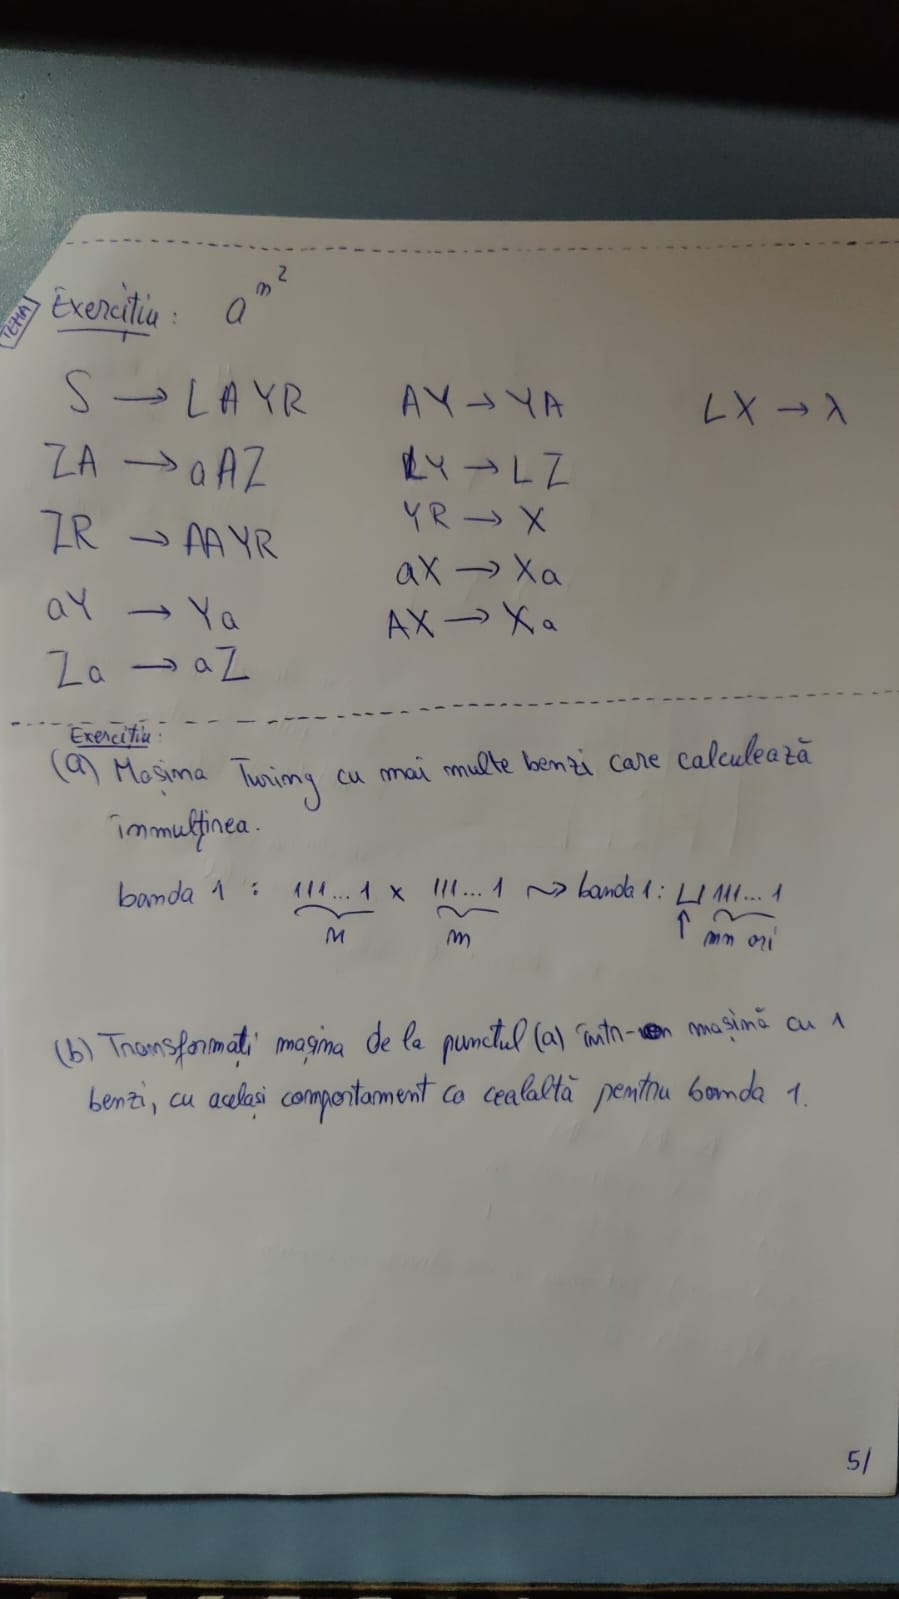 TEMA
Exercițiu: a^n^2
S → LAYR AY → YA LX → λ
ZA → aAZ LY → LZ
ZR → AAYR YR → X
aY → Ya aX → Xa
Za → aZ AX → Xa
Exercițiu:
(a) Mașina Turing cu mai multe benzi care calculează
înmulținea.
banda 1 : 111...1 x 111...1 ⇝ banda 1: ⊔ 111...1
n m ↑ mn ori
(b) Transformați mașina de la punctul (a) într-o mașină cu 1
benzi, cu același comportament ca cealaltă pentru banda 1.
5/